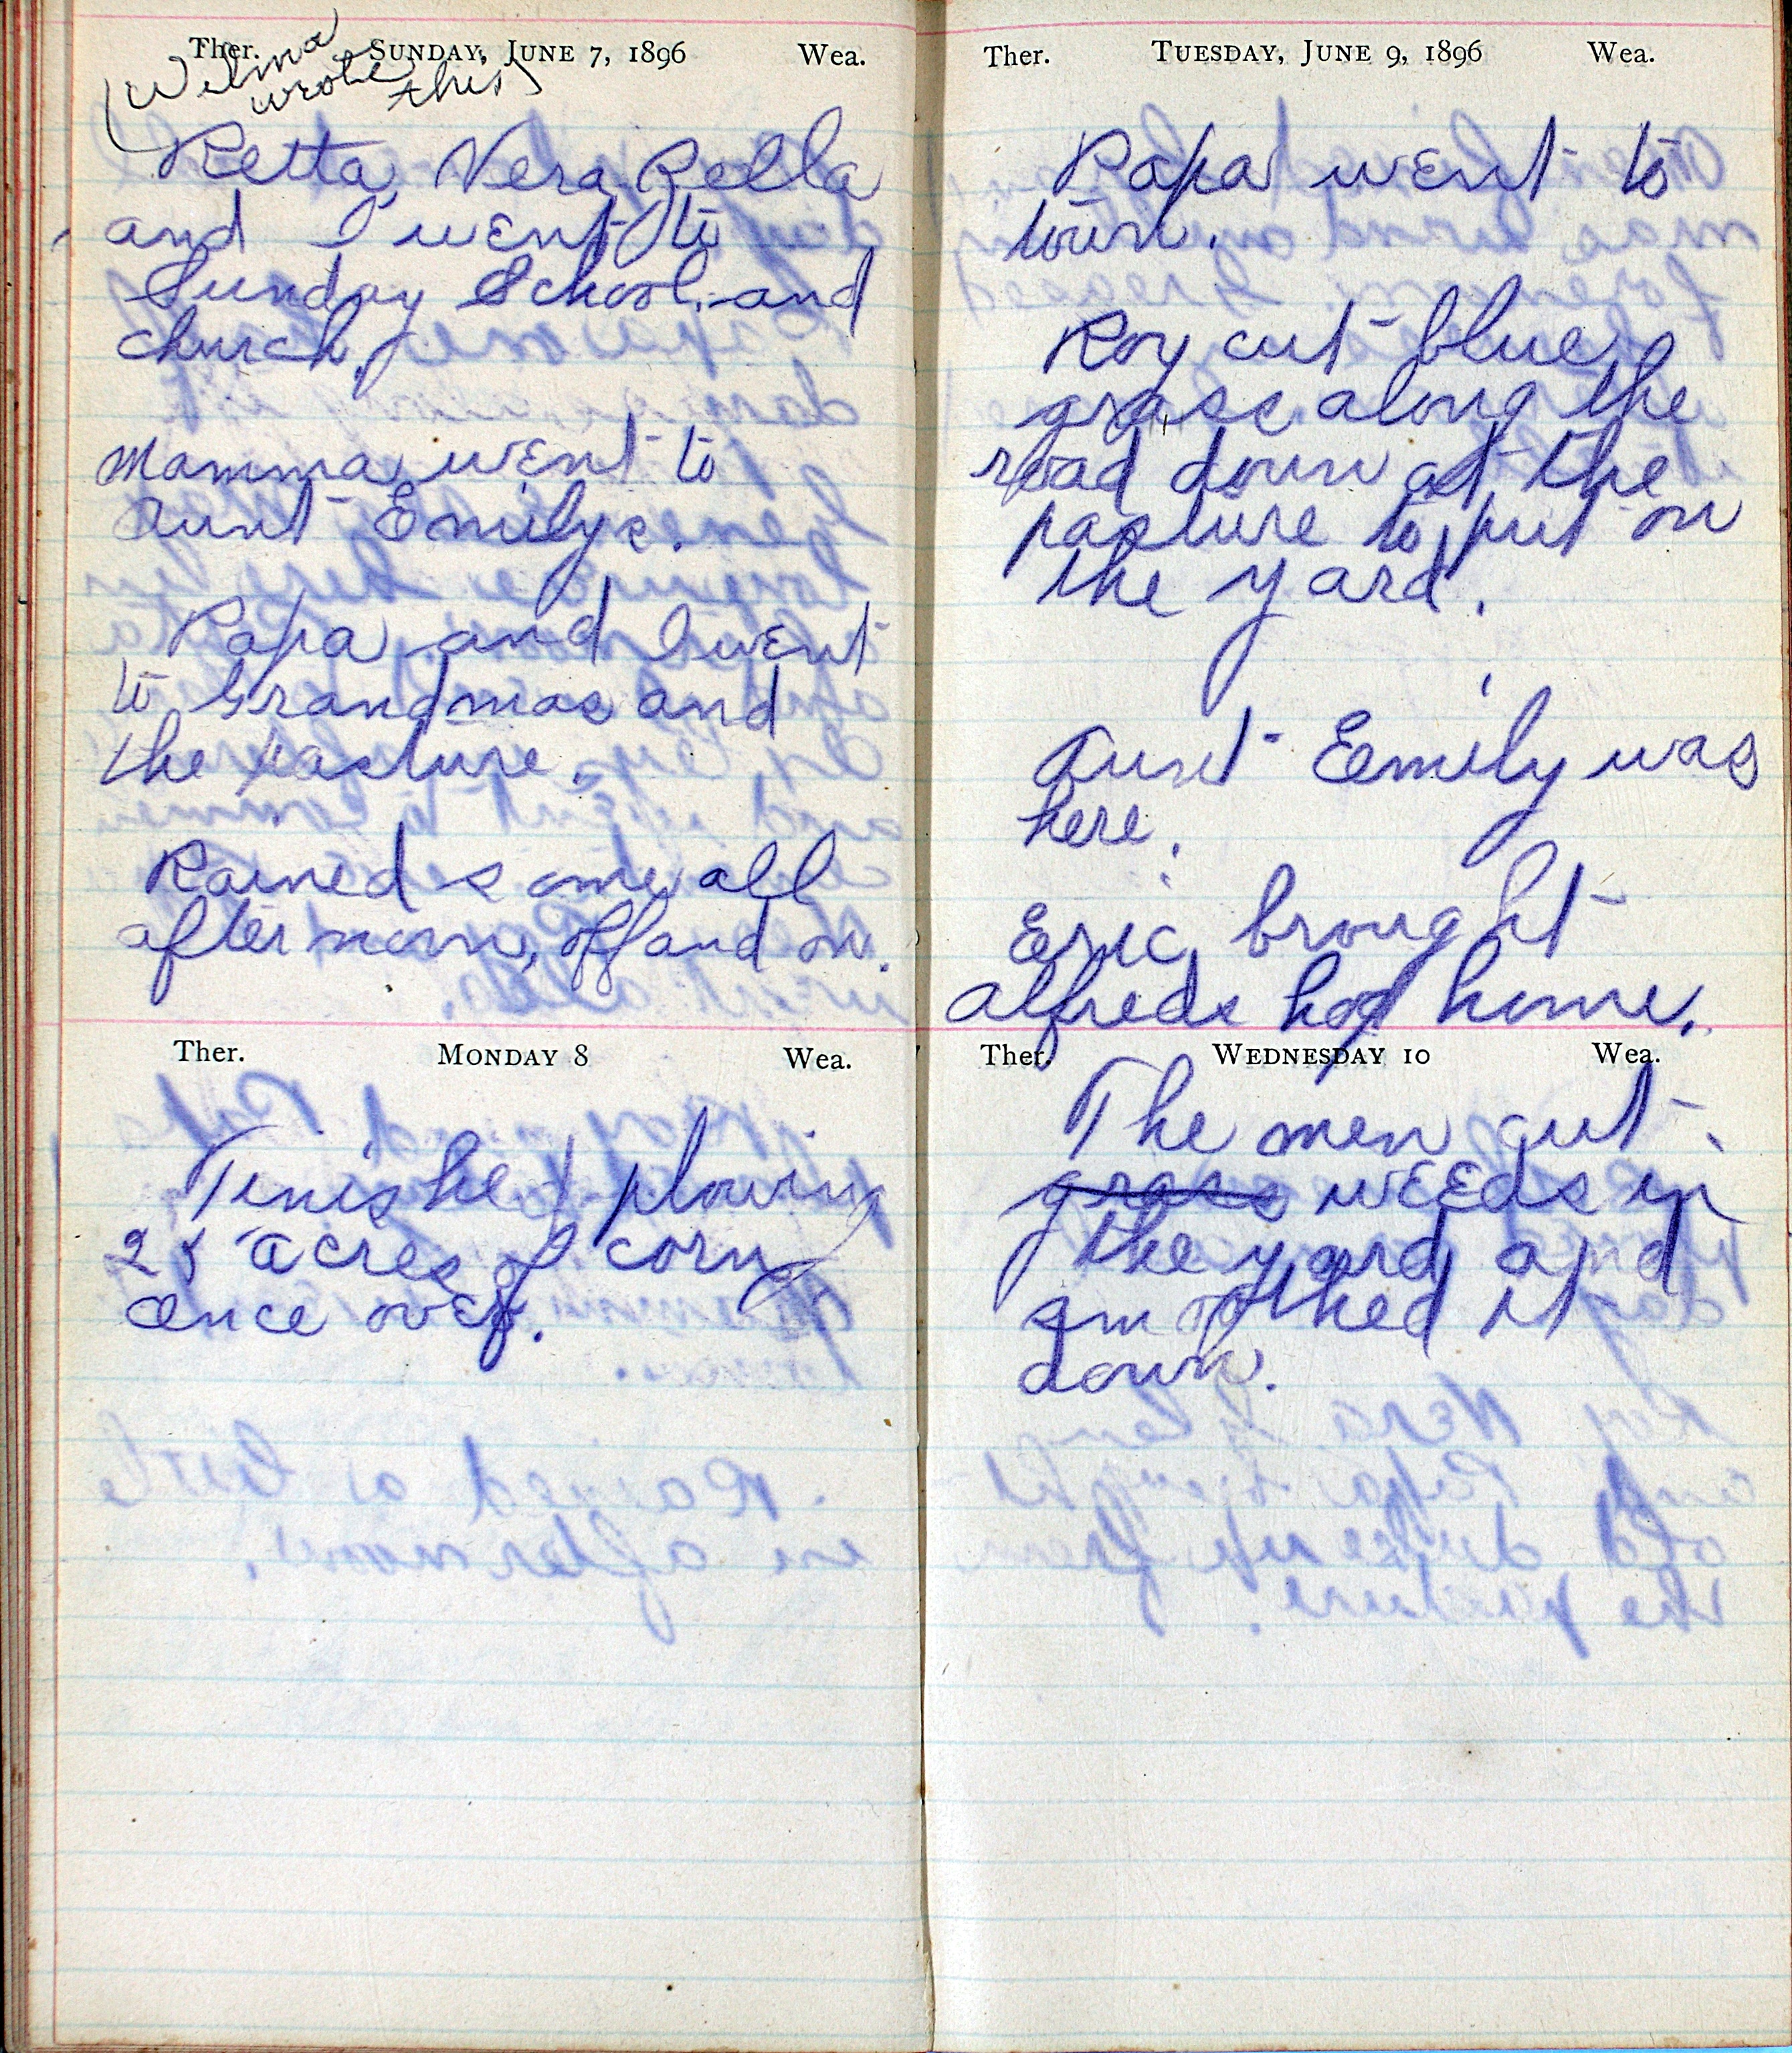 Ther. SUNDAY, JUNE 7, 1896 Wea.
(Wilma
wrote
this)
Retta, Vera, Rella
and I went to
Sunday School, and
church.
Mamma went to
Aunt Emilys.
Papa and I went
to Grandmas and
the pasture.
Rained some all
after noon, off and on.
Ther. MONDAY 8 Wea.
Finished plowing
25 acres of corn
once over.
Ther. TUESDAY, JUNE 9, 1896 Wea.
Papa went to
town.
Roy cut blue
grass along the
road down at the
pasture to put on
the yard.
Aunt Emily was
here.
Eric brought
Alfreds hog home.
Ther. WEDNESDAY 10 Wea.
The men cut
grass weeds in
the yard and
smoothed it
down.